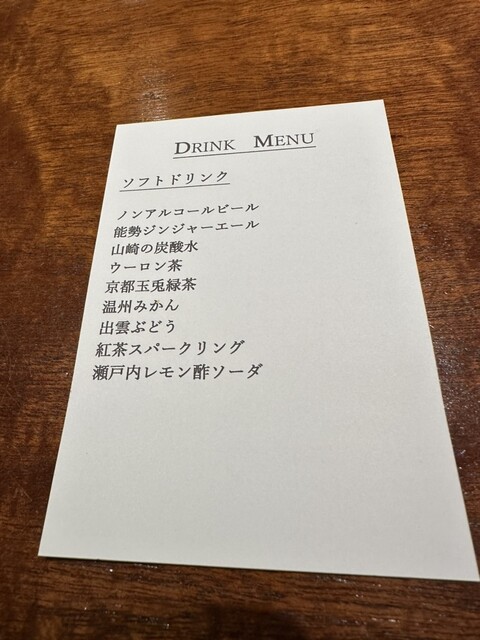 DRINK MENU
ソフトドリンク
ノンアルコールビール
能勢ジンジャーエール
山崎の炭酸水
ウーロン茶
京都玉兎緑茶
温州みかん
出雲ぶどう
紅茶スパークリング
瀬戸内レモン酢ソーダ